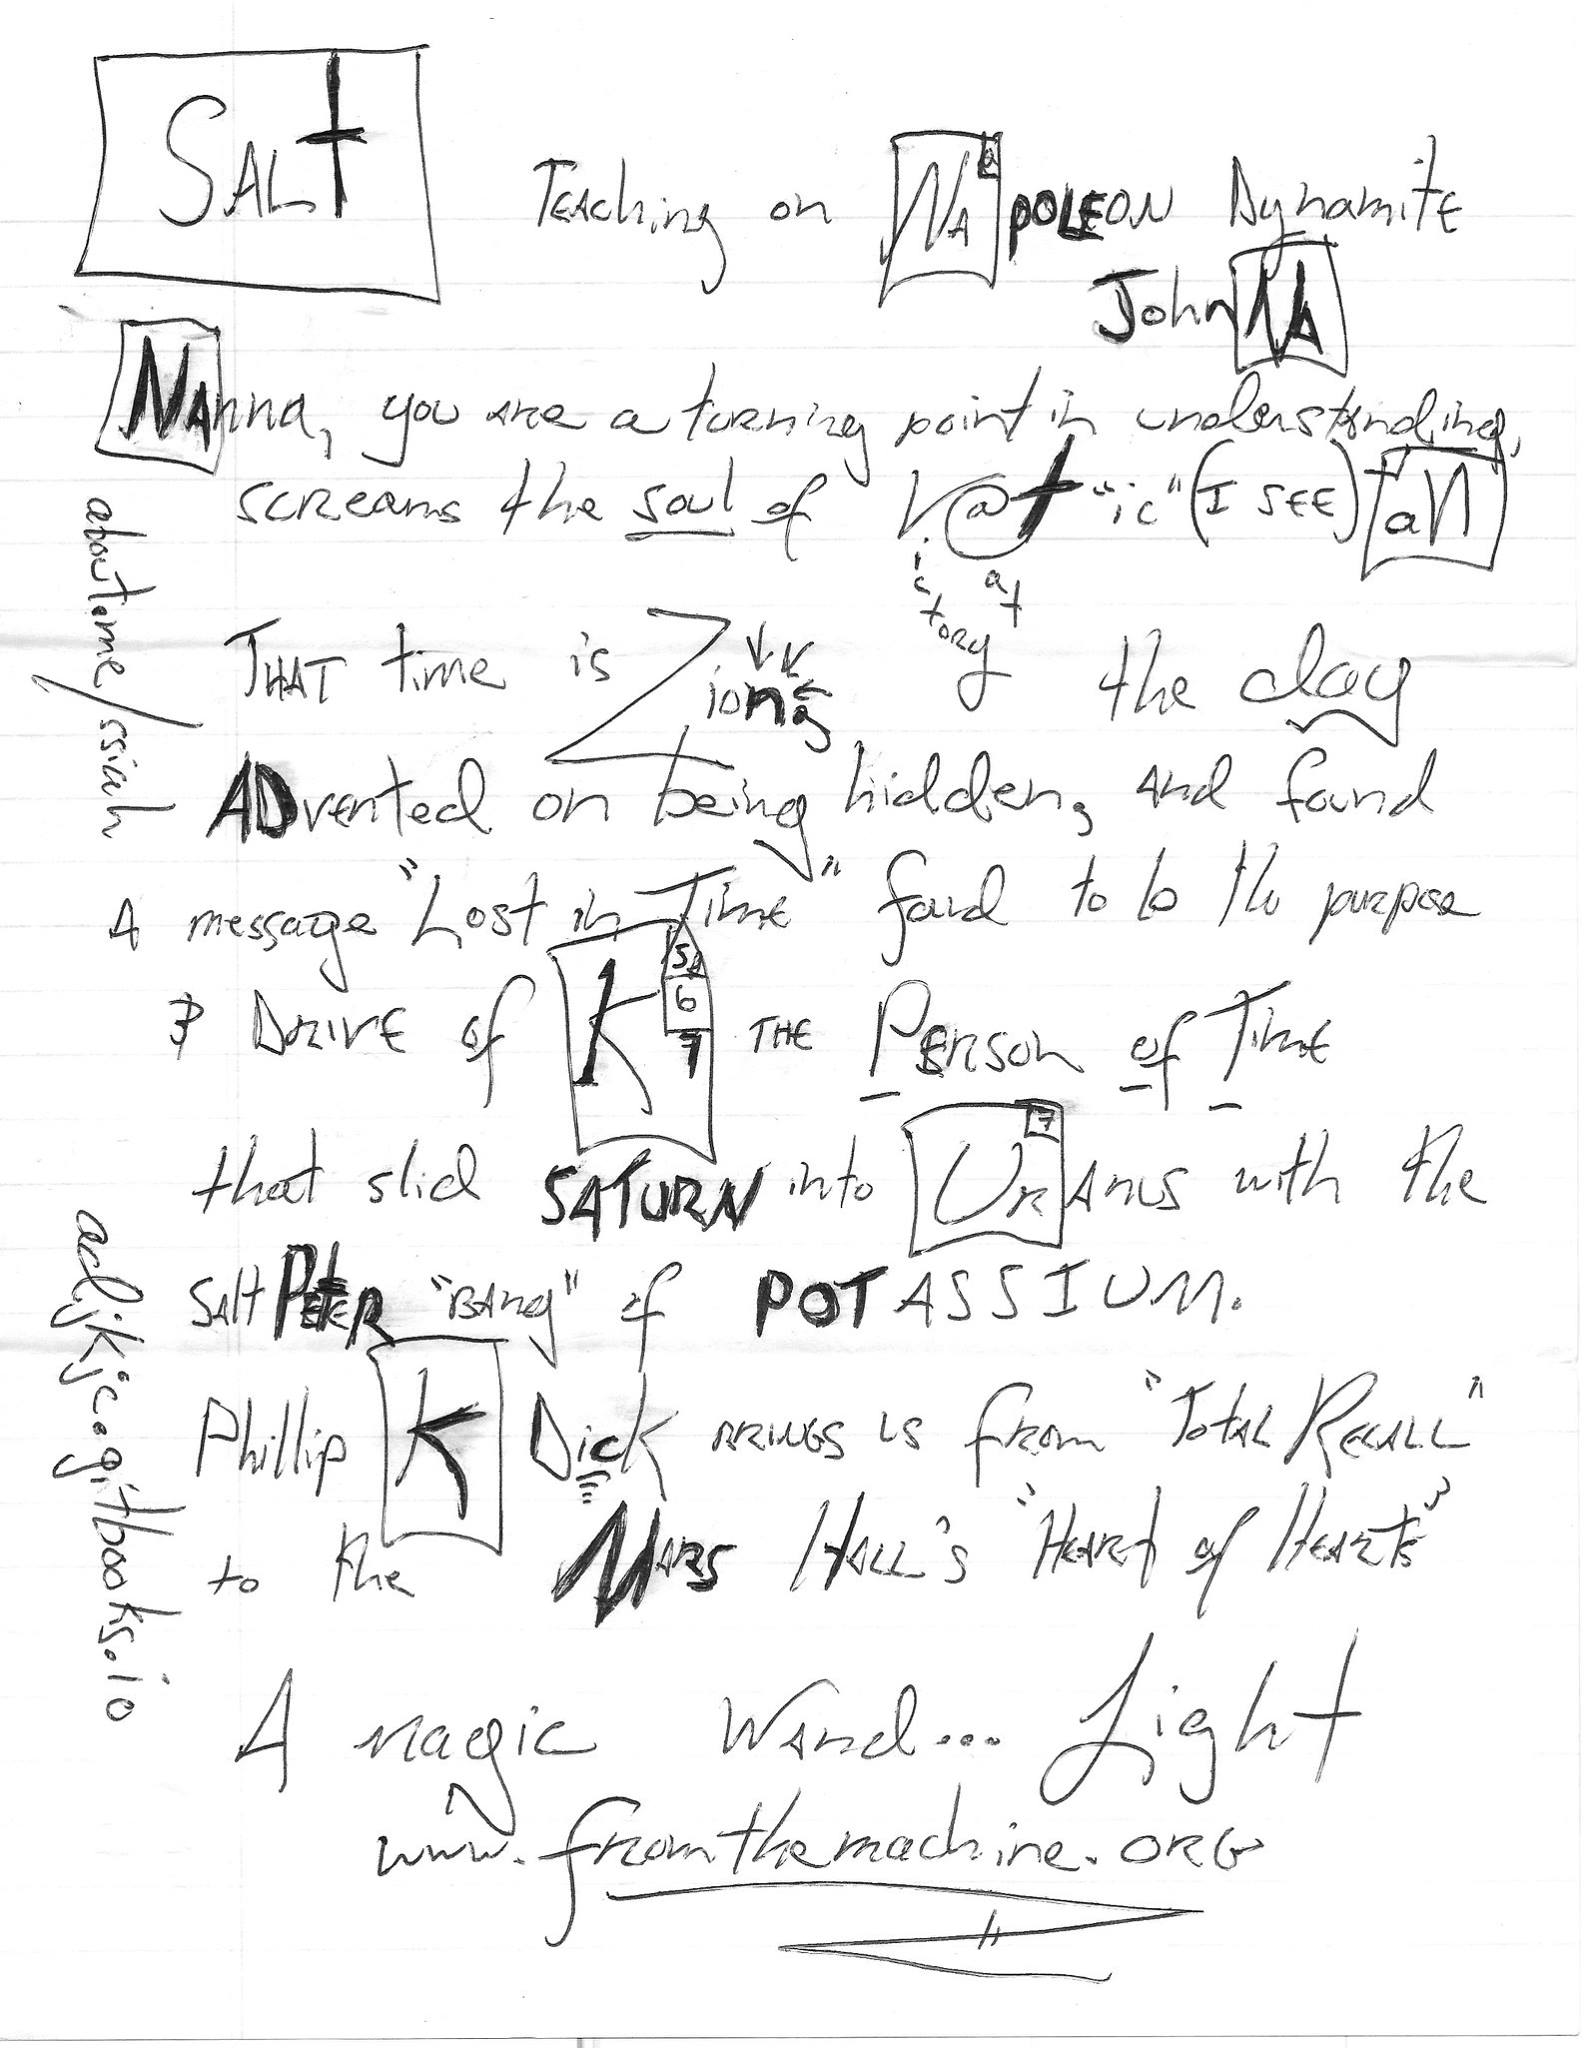 SALt
Teaching on NapOLEON Dynamite
JohnNA
NAnna, you are a turning point in understanding,
screams the soul of V@t "ic" (I SEE) aN
ictory at
THAT time is Zion the day
ADvented on being hidden, and found
A message "Lost in Time" found to b the purpose
& DRIVE of K THE Person of Time
5
6
7
that slid SATURN into URanus with the
7
Salt PETER "BANG" of POTASSIUM.
Phillip K Dick BRINGS us from "Total RECALL"
to the MARS HALL's "HEART of HEARTS"
A magic WAND... Light
www.fromthemachine.ORG
aboutome/ssiah
adjkjc.gitbooks.io